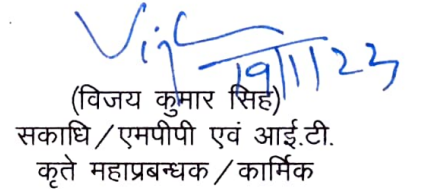 Vijc
19/1/23
(विजय कुमार सिंह)
सकाधि/एमपीपी एवं आई.टी.
कृते महाप्रबन्धक/कार्मिक